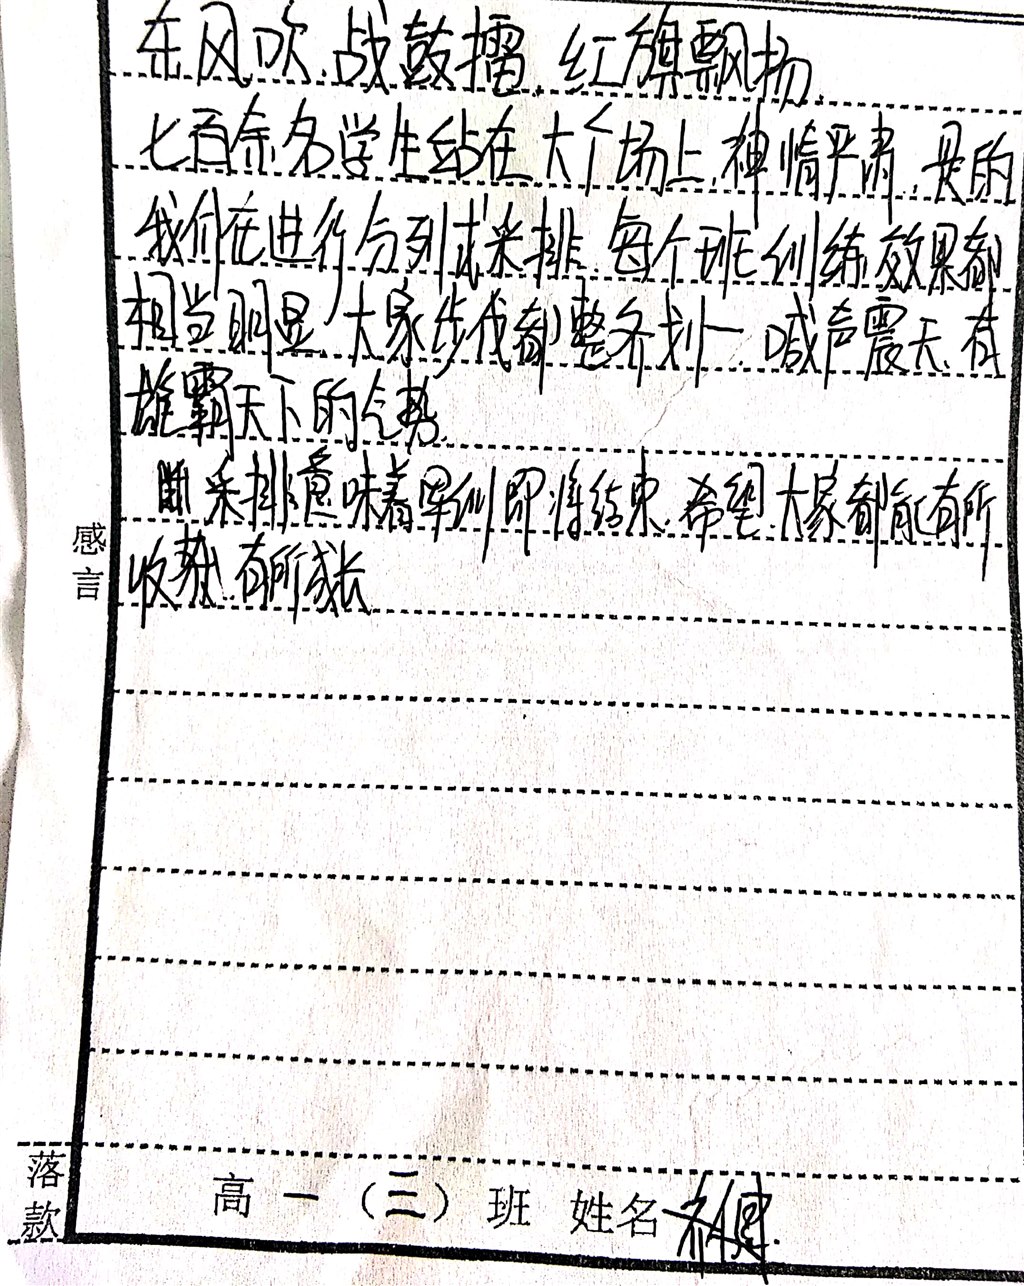 东风吹.战鼓擂.红旗飘扬.
七百余名学生站在大广场上,神情严肃.是的
我们在进行分列式采排.每个班训练效果都
相当明显,大家步伐都整齐划一.喊声震天.有
雄霸天下的气势.
采排意味着军训即将结束.希望.大家都能有所
收获.有所成长
感言
落款
高一(三)班 姓名